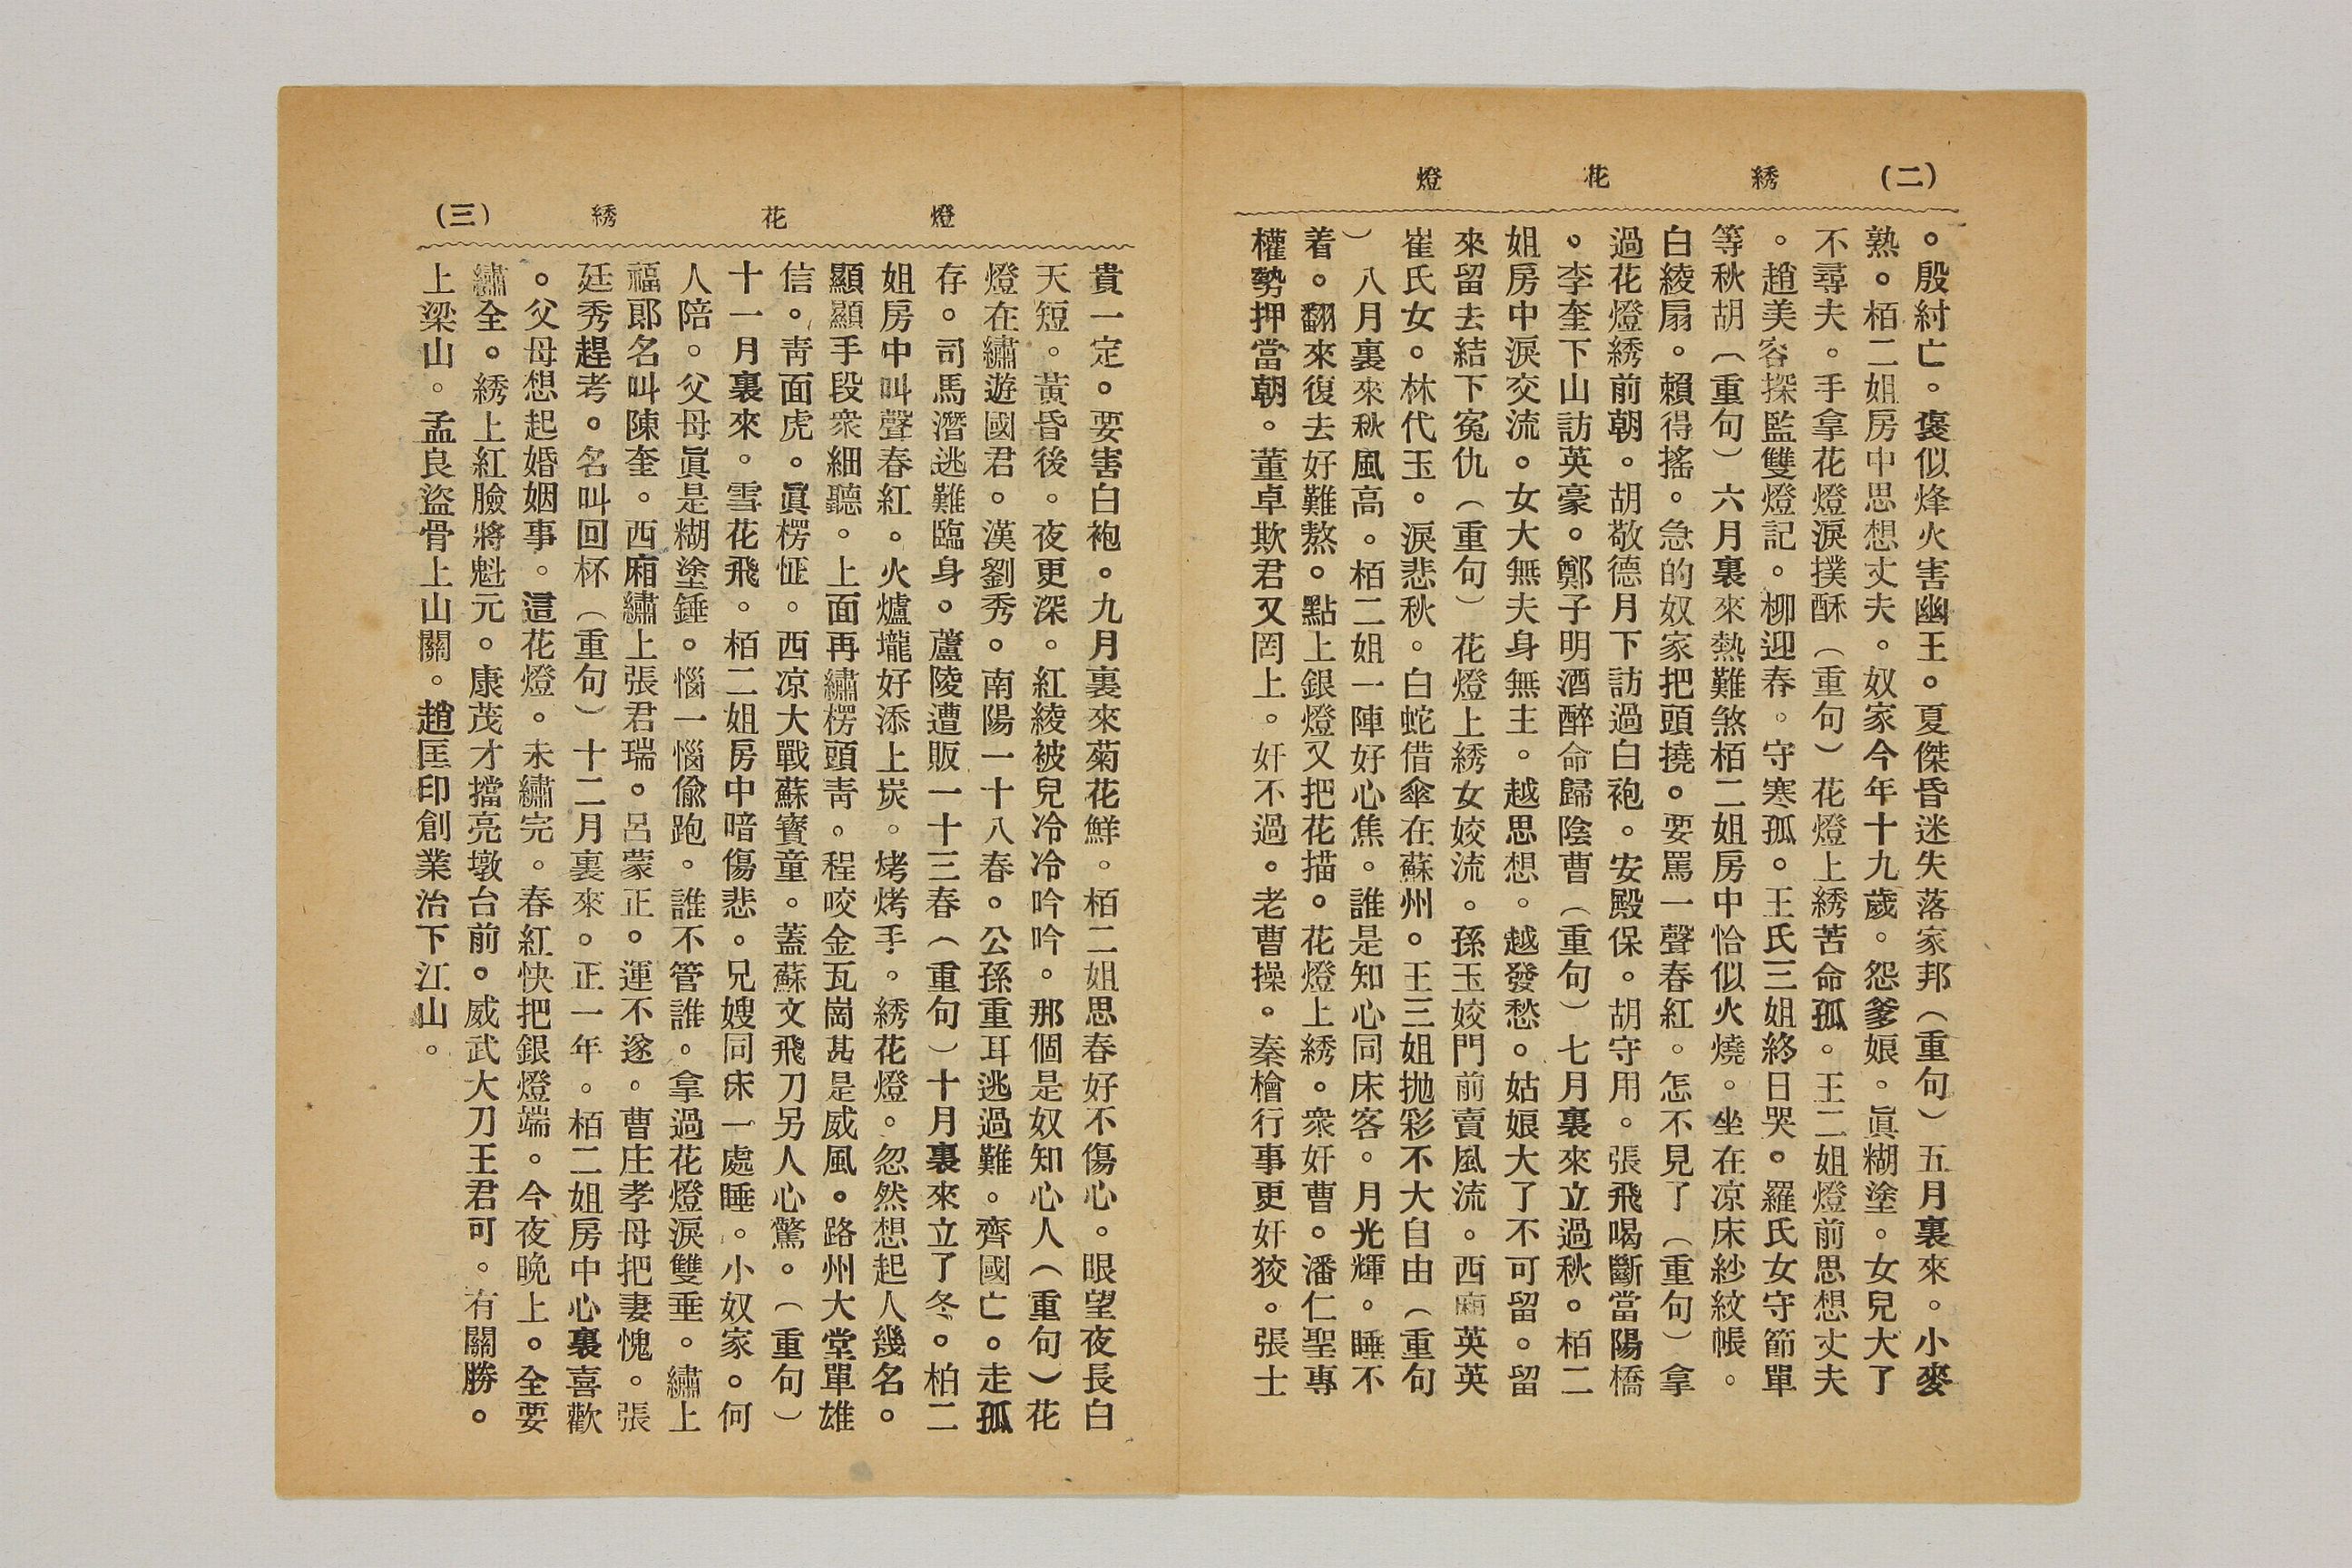 (二) 綉花燈
。殷紂亡。褒似烽火害幽王。夏傑昏迷失落家邦（重句）五月裏來。小麥
熟。栢二姐房中思想丈夫。奴家今年十九歲。怨爹娘。眞糊塗。女兒大了
不尋夫。手拿花燈淚撲酥（重句）花燈上綉苦命孤。王二姐燈前思想丈夫
。趙美容探監雙燈記。柳迎春。守寒孤。王氏三姐終日哭。羅氏女守節單
等秋胡（重句）六月裏來熱難煞栢二姐房中恰似火燒。坐在凉床紗紋帳。
白綾扇。賴得搖。急的奴家把頭撓。要罵一聲春紅。怎不見了（重句）拿
過花燈綉前朝。胡敬德月下訪過白袍。安殿保。胡守用。張飛喝斷當陽橋
。李奎下山訪英豪。鄭子明酒醉命歸陰曹（重句）七月裏來立過秋。栢二
姐房中淚交流。女大無夫身無主。越思想。越發愁。姑娘大了不可留。留
來留去結下寃仇（重句）花燈上綉女姣流。孫玉姣門前賣風流。西廂英英
崔氏女。林代玉。淚悲秋。白蛇借傘在蘇州。王三姐抛彩不大自由（重句
）八月裏來秋風高。栢二姐一陣好心焦。誰是知心同床客。月光輝。睡不
着。翻來復去好難熬。點上銀燈又把花描。花燈上綉。衆奸曹。潘仁聖專
權勢押當朝。董卓欺君又罔上。奸不過。老曹操。秦檜行事更奸狡。張士
燈花綉 (三)
貴一定。要害白袍。九月裏來菊花鮮。栢二姐思春好不傷心。眼望夜長白
天短。黃昏後。夜更深。紅綾被兒冷冷吟吟。那個是奴知心人（重句）花
燈在繡遊國君。漢劉秀。南陽一十八春。公孫重耳逃過難。齊國亡。走孤
存。司馬潛逃難臨身。蘆陵遭販一十三春（重句）十月裏來立了冬。柏二
姐房中叫聲春紅。火爐壠好添上炭。烤烤手。綉花燈。忽然想起人幾名。
顯顯手段衆細聽。上面再繡楞頭靑。程咬金瓦崗甚是威風。路州大堂單雄
信。靑面虎。眞楞怔。西凉大戰蘇寶童。蓋蘇文飛刀另人心驚。（重句）
十一月裏來。雪花飛。栢二姐房中喑傷悲。兄嫂同床一處睡。小奴家。何
人陪。父母眞是糊塗錘。惱一惱偸跑。誰不管誰。拿過花燈淚雙垂。繡上
福郞名叫陳奎。西廂繡上張君瑞。呂蒙正。運不遂。曹庄孝母把妻愧。張
廷秀趕考。名叫回杯（重句）十二月裏來。正一年。栢二姐房中心裏喜歡
。父母想起婚姻事。這花燈。未繡完。春紅快把銀燈端。今夜晚上。全要
繡全。綉上紅臉將魁元。康茂才擋亮墩台前。威武大刀王君可。有關勝。
上梁山。孟良盜骨上山關。趙匡印創業治下江山。